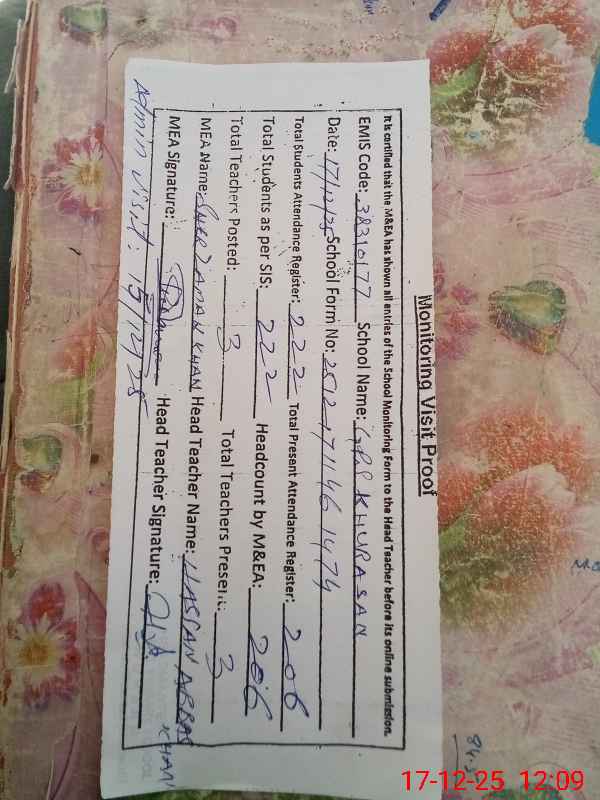 Monitoring Visit Proof
It is certified that the M&EA has shown all entries of the School Monitoring Form to the Head Teacher before its online submission.
EMIS Code: 38310177 School Name: GPS KHURASAN
Date: 17/12/25 School Form No: 2512171146 1474
Total Students Attendance Register: 222 Total Present Attendance Register: 206
Total Students as per SIS: 222 Headcount by M&EA: 206
Total Teachers Posted: 3 Total Teachers Present: 3
MEA Name: SHER ZAMAN KHAN Head Teacher Name: HASSAN ABBAS KHAN
MEA Signature: Head Teacher Signature:
Admin visit: 15/12/25
17-12-25 12:09